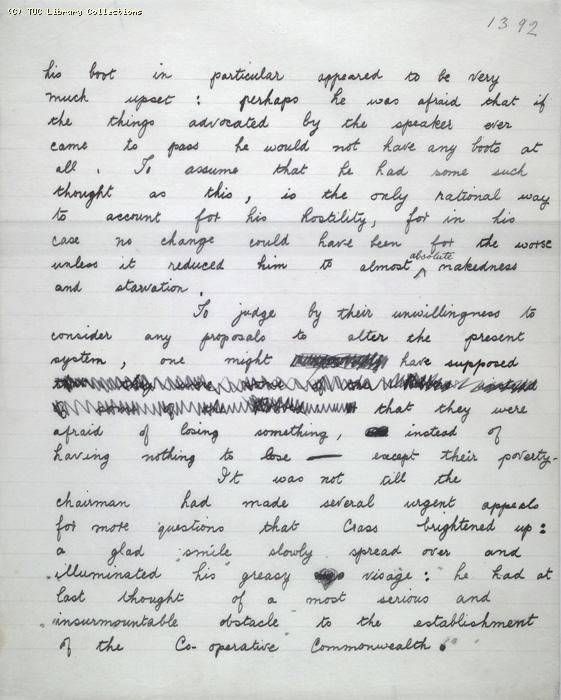 (C) TUC Library Collections
1392
his boot in particular appeared to be very
much upset : perhaps he was afraid that if
the things advocated by the speaker ever
came to pass he would not have any boots at
all. To assume that he had some such
thought as this, is the only rational way
to account for his hostility, for in his
case no change could have been for the worse
unless it reduced him to almost absolute nakedness
and starvation.
To judge by their unwillingness to
consider any proposals to alter the present
system, one might have supposed
that they were
afraid of losing something, instead of
having nothing to lose — except their poverty.
It was not till the
chairman had made several urgent appeals
for more questions that Crass brightened up:
a glad smile slowly spread over and
illuminated his greasy visage: he had at
last thought of a most serious and
insurmountable obstacle to the establishment
of the Co-operative Commonwealth.